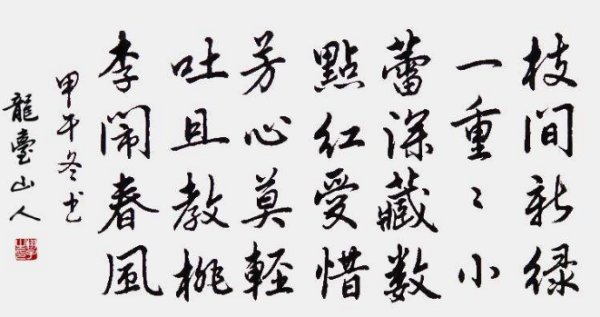 枝間新綠
一重〻小
蕾深藏數
點紅愛惜
芳心莫輕
吐且教桃
李鬧春風
甲午冬书
龍臺山人